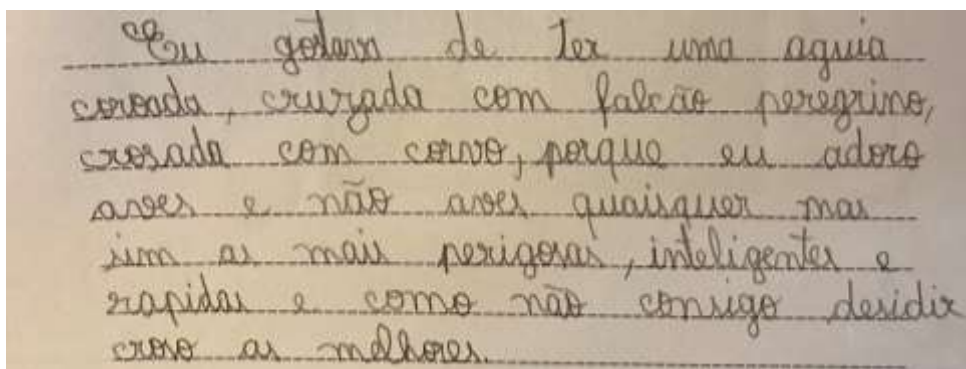 Eu gostava de ter uma aguia
coroada, cruzada com falcão peregrino,
crosada com corvo, porque eu adoro
aves e não aves quaisquer mas
sim as mais perigosas, inteligentes e
rapidas e como não consigo desidir
croso as melhores.